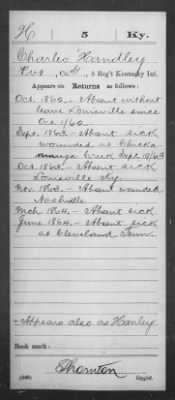 H 5 Ky.
Charles Handley
Pvt, Co. H, 5 Reg't Kentucky Inf.
Appears on Returns as follows:
Oct. 1862 - Absent without
leave Louisville since
Oct. 1/62
Sept. 1863 - Absent sick
wounded at Chicka-
mauga Creek Sept. 19/63
Oct. 1863. - Absent sick
Louisville Ky.
Nov. 1863. - Absent wounded
Nashville
Mch 1864. - Absent sick
June 1864. - Absent sick
at Cleveland Tenn.
- Appears also as Hanley.
Book mark:
Thornton
(546) Copyist.